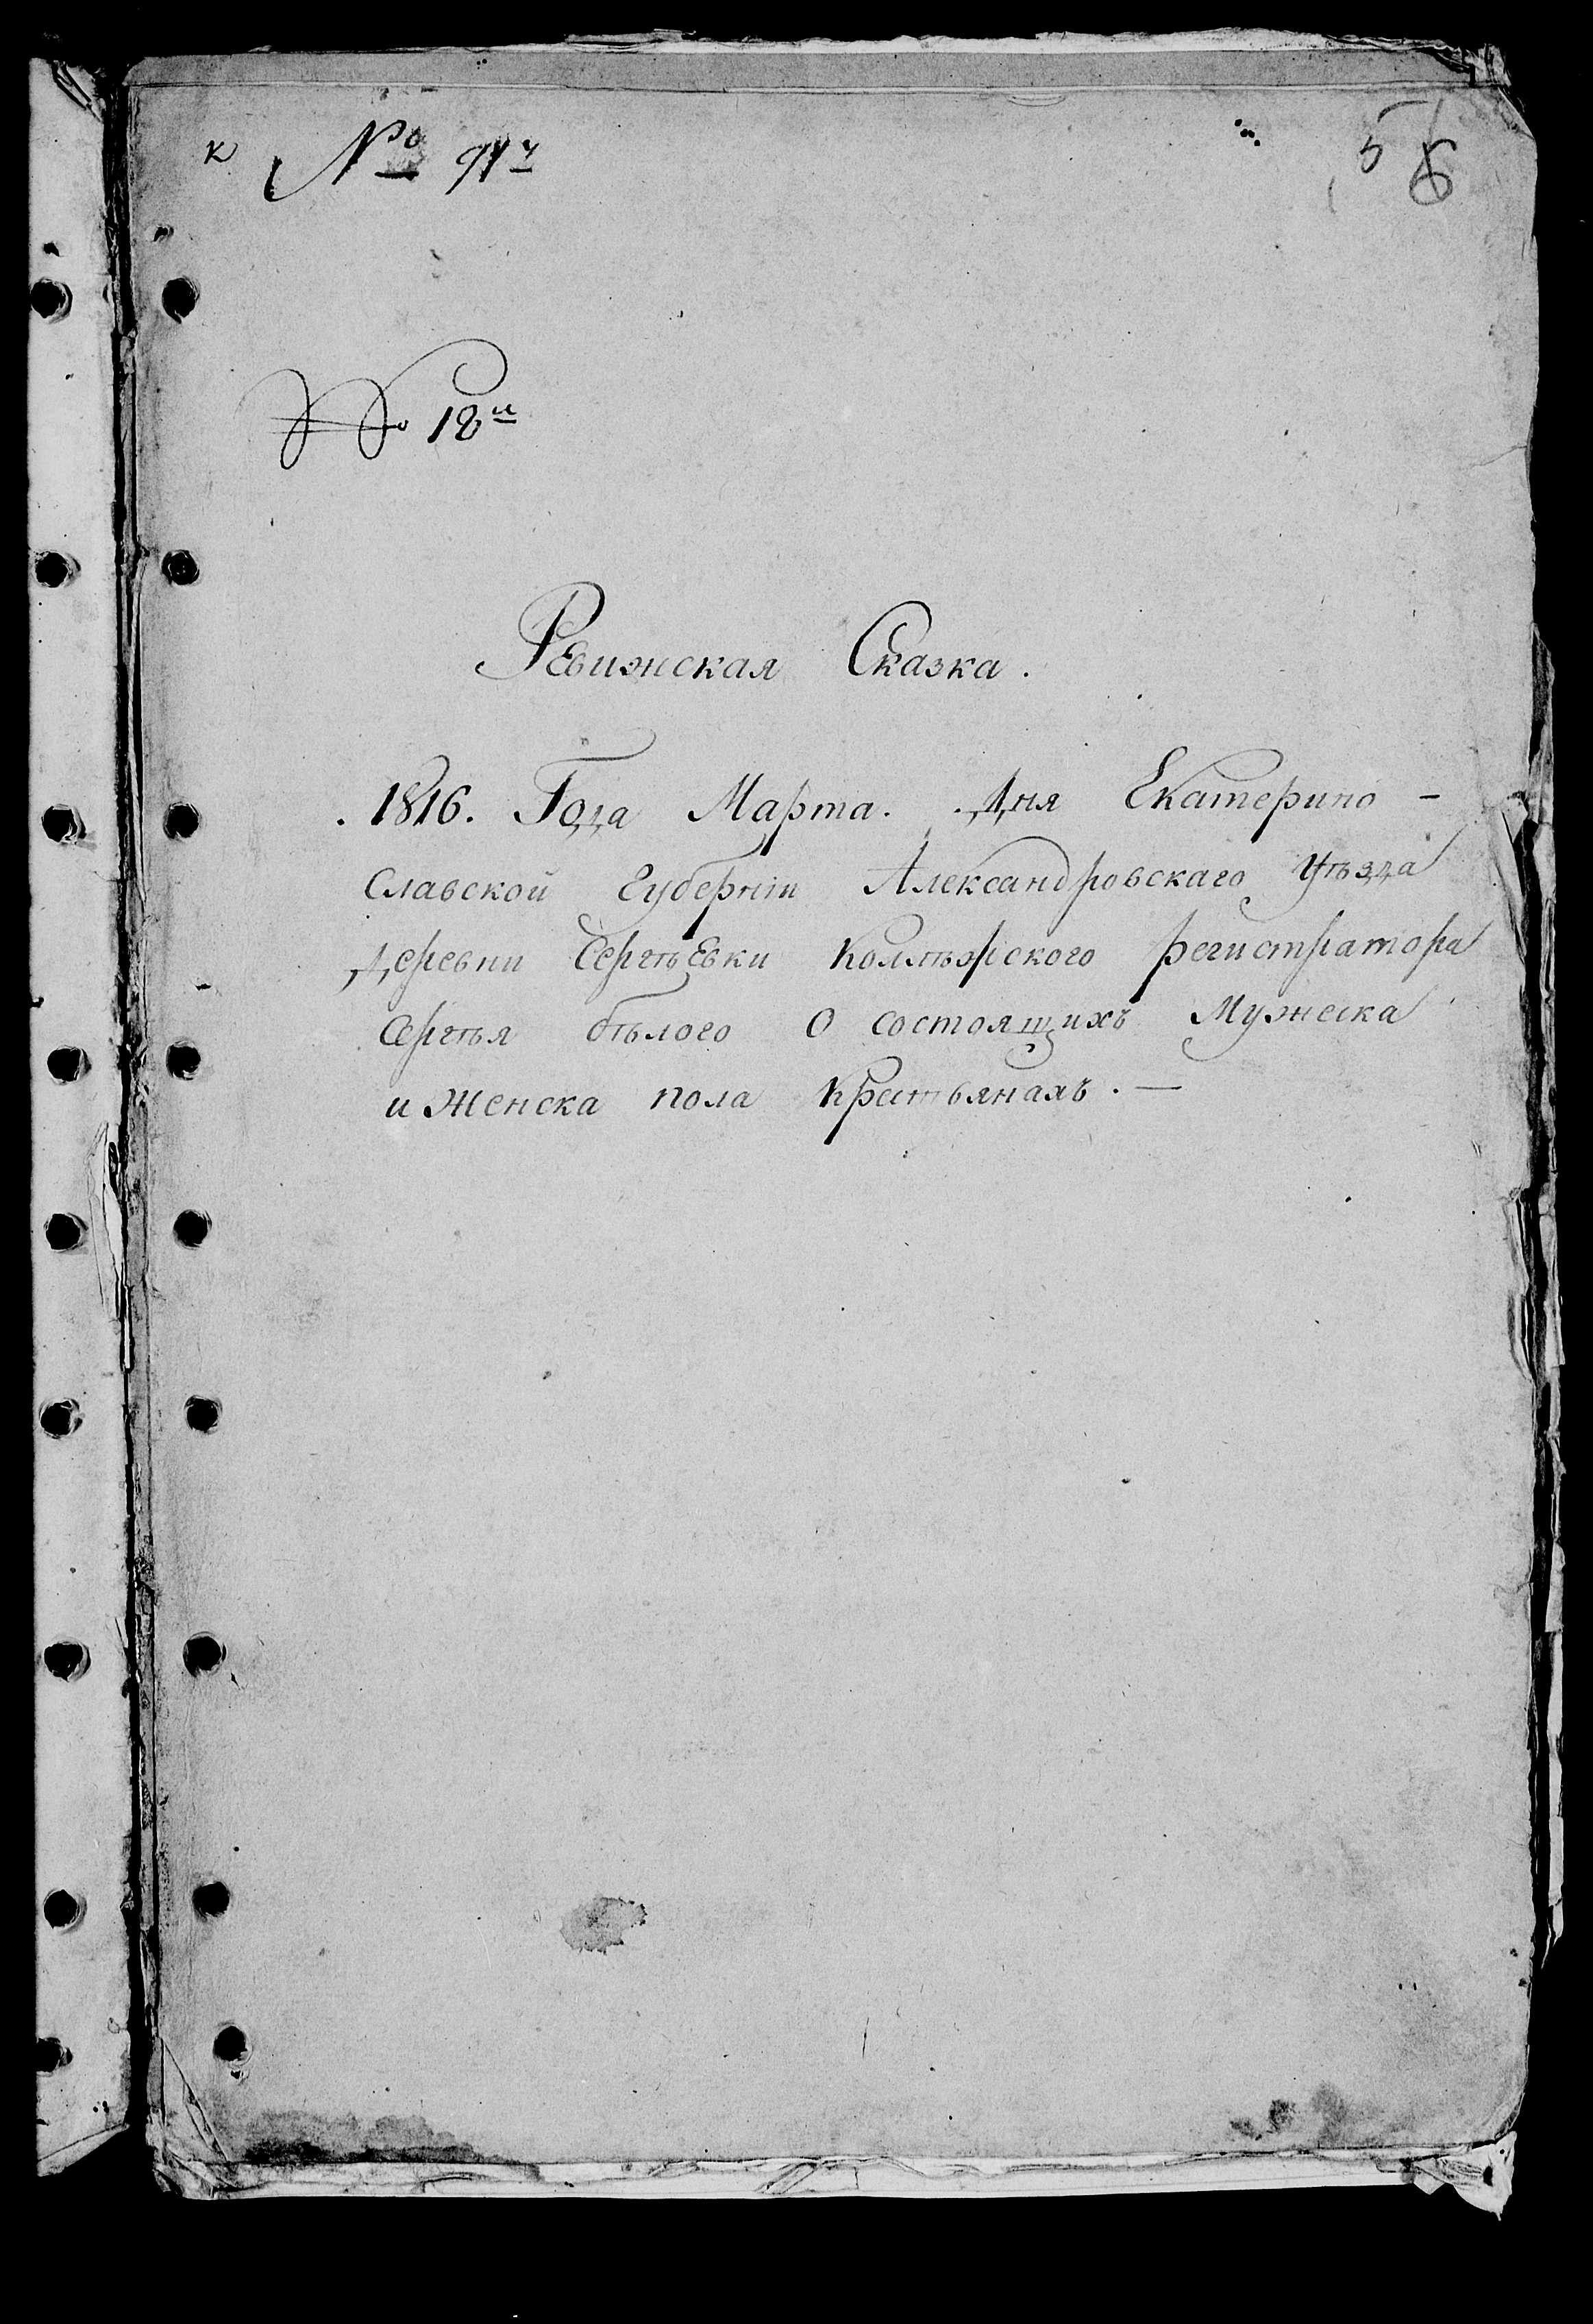 к № 91й
5 6
№ 18й
Ревижская Сказка.
1816. Года Марта. Дня Екатерино-
славской губерніи Александровскаго уѣзда
деревни Сергѣевки Коллѣжского регистратора
Сергѣя бѣлого о состоящихъ Мужеска
и Женска пола Крестьянахъ. —